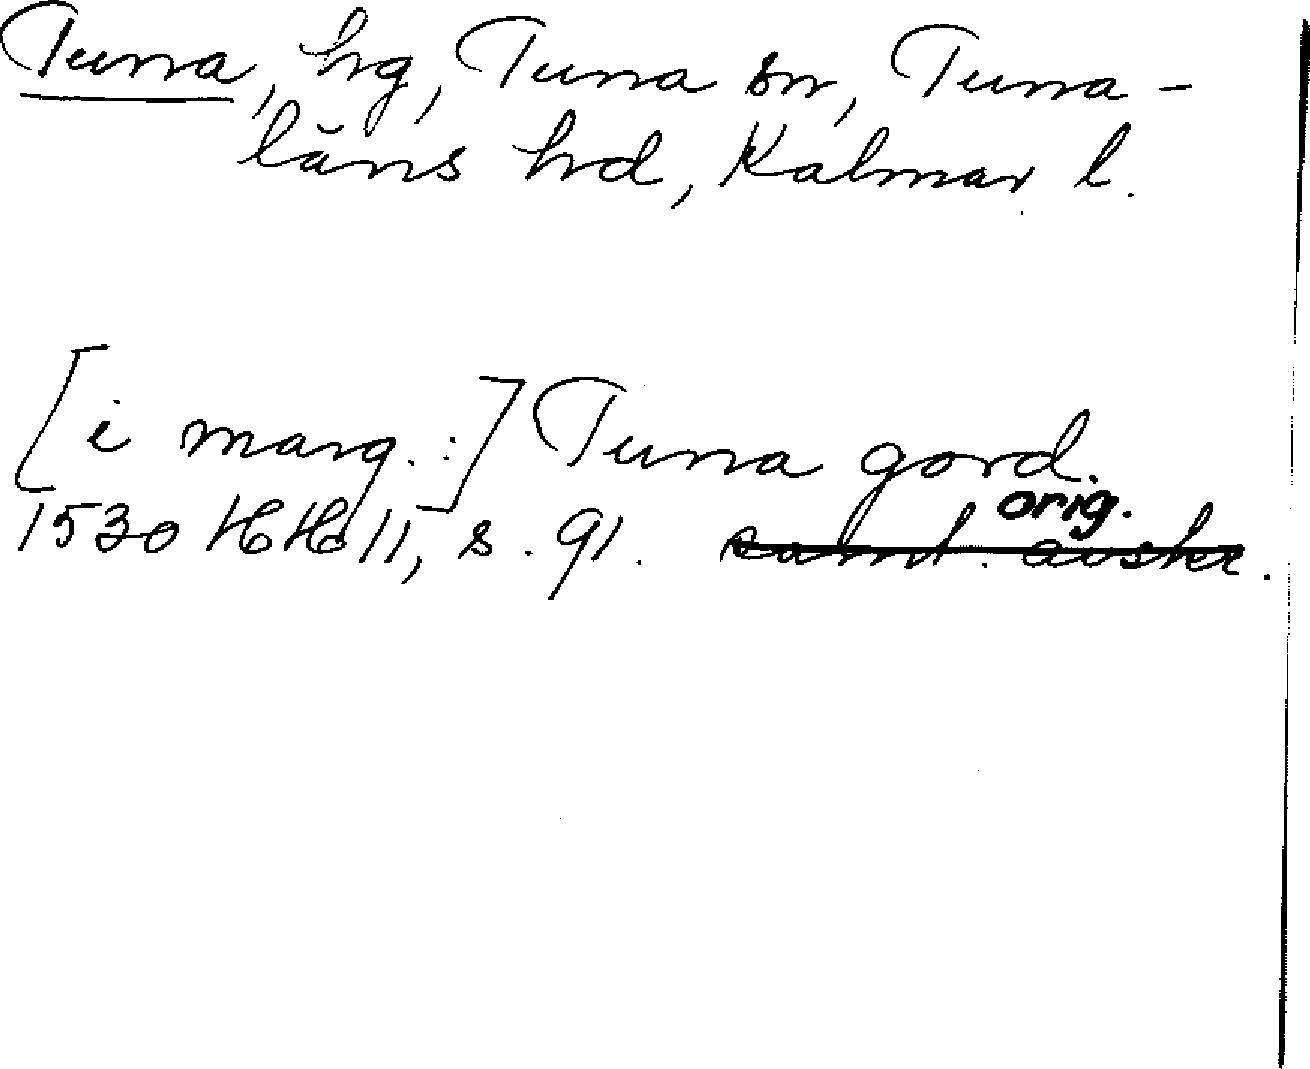 Tuna, hg, Tuna sn, Tuna-
läns hd, Kalmar l.
[i marg.:] Tuna gord.
orig.
1530 HH 11, s. 91. samt. avskr.